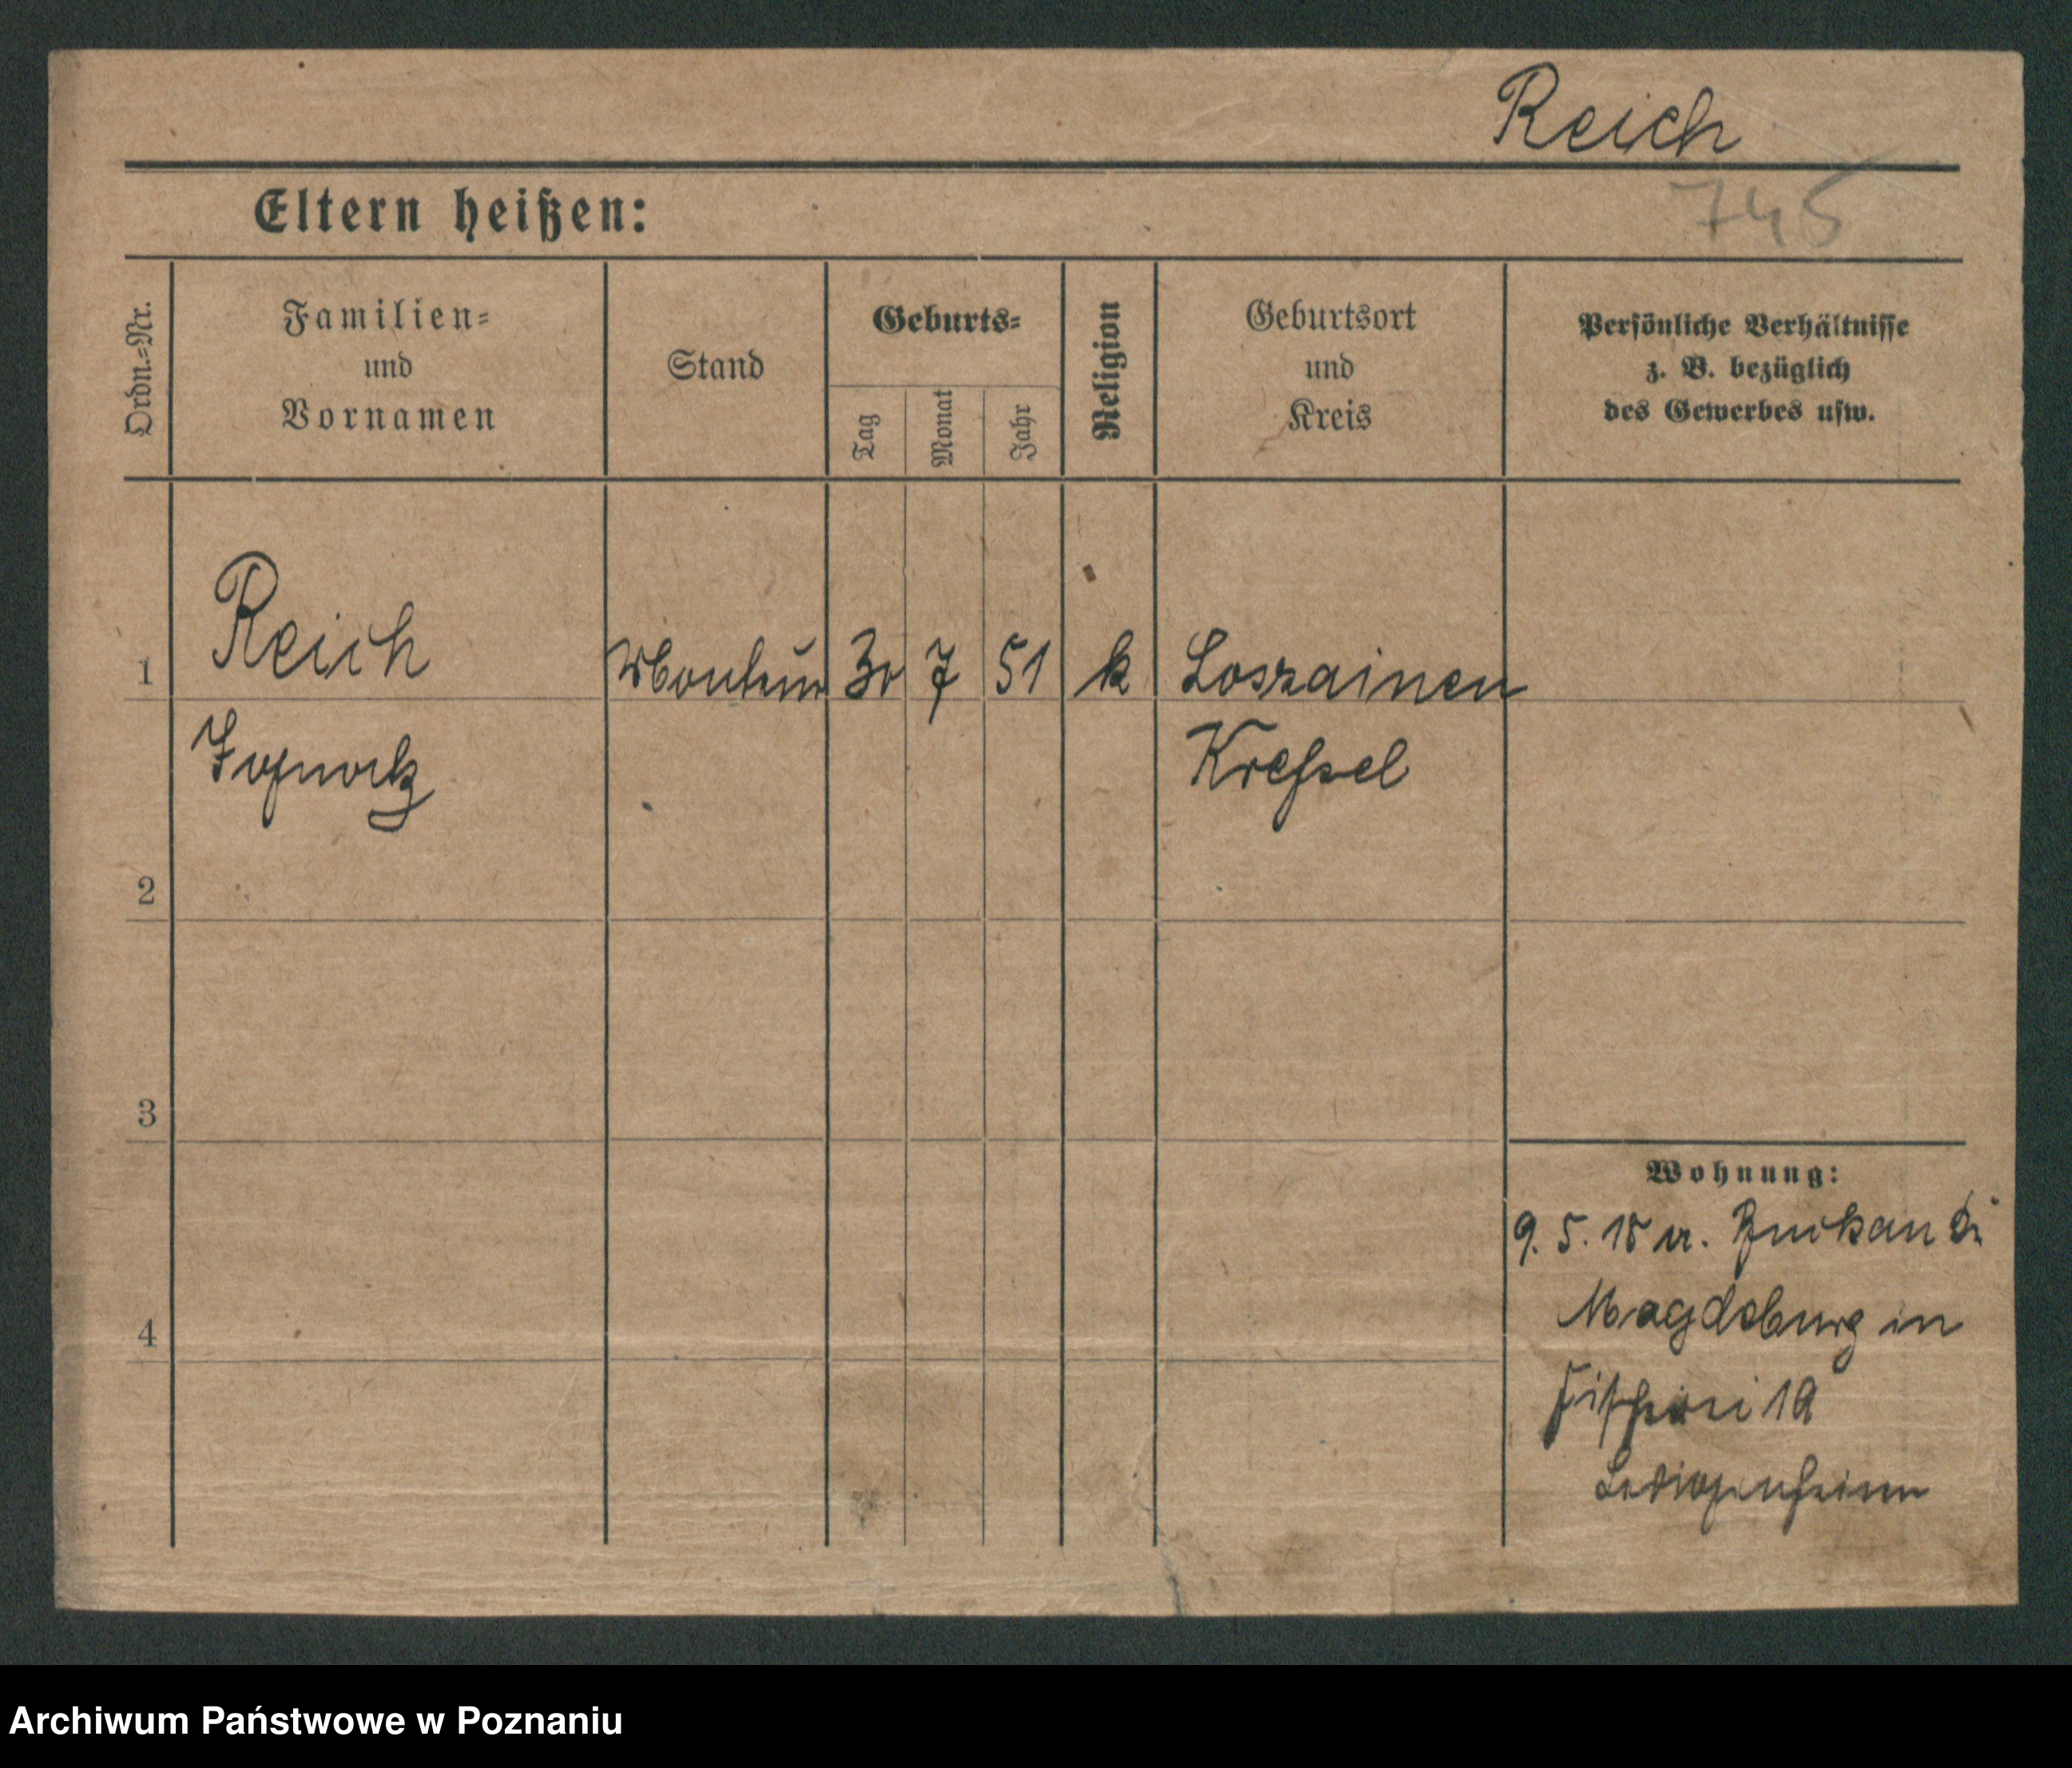 Reich
745
Eltern heißen:
Ordn.=Nr.
Familien=
und
Vornamen
Stand
Geburts=
Tag
Monat
Jahr
Religion
Geburtsort
und
Kreis
Persönliche Verhältnisse
z. B. bezüglich
des Gewerbes usw.
1
Reich
Monteur
30
7
51
k
Loszainen
Kreßel
2
3
4
Wohnung:
9. 5. 18
Magdeburg in
Ledigenheim
Archiwum Państwowe w Poznaniu